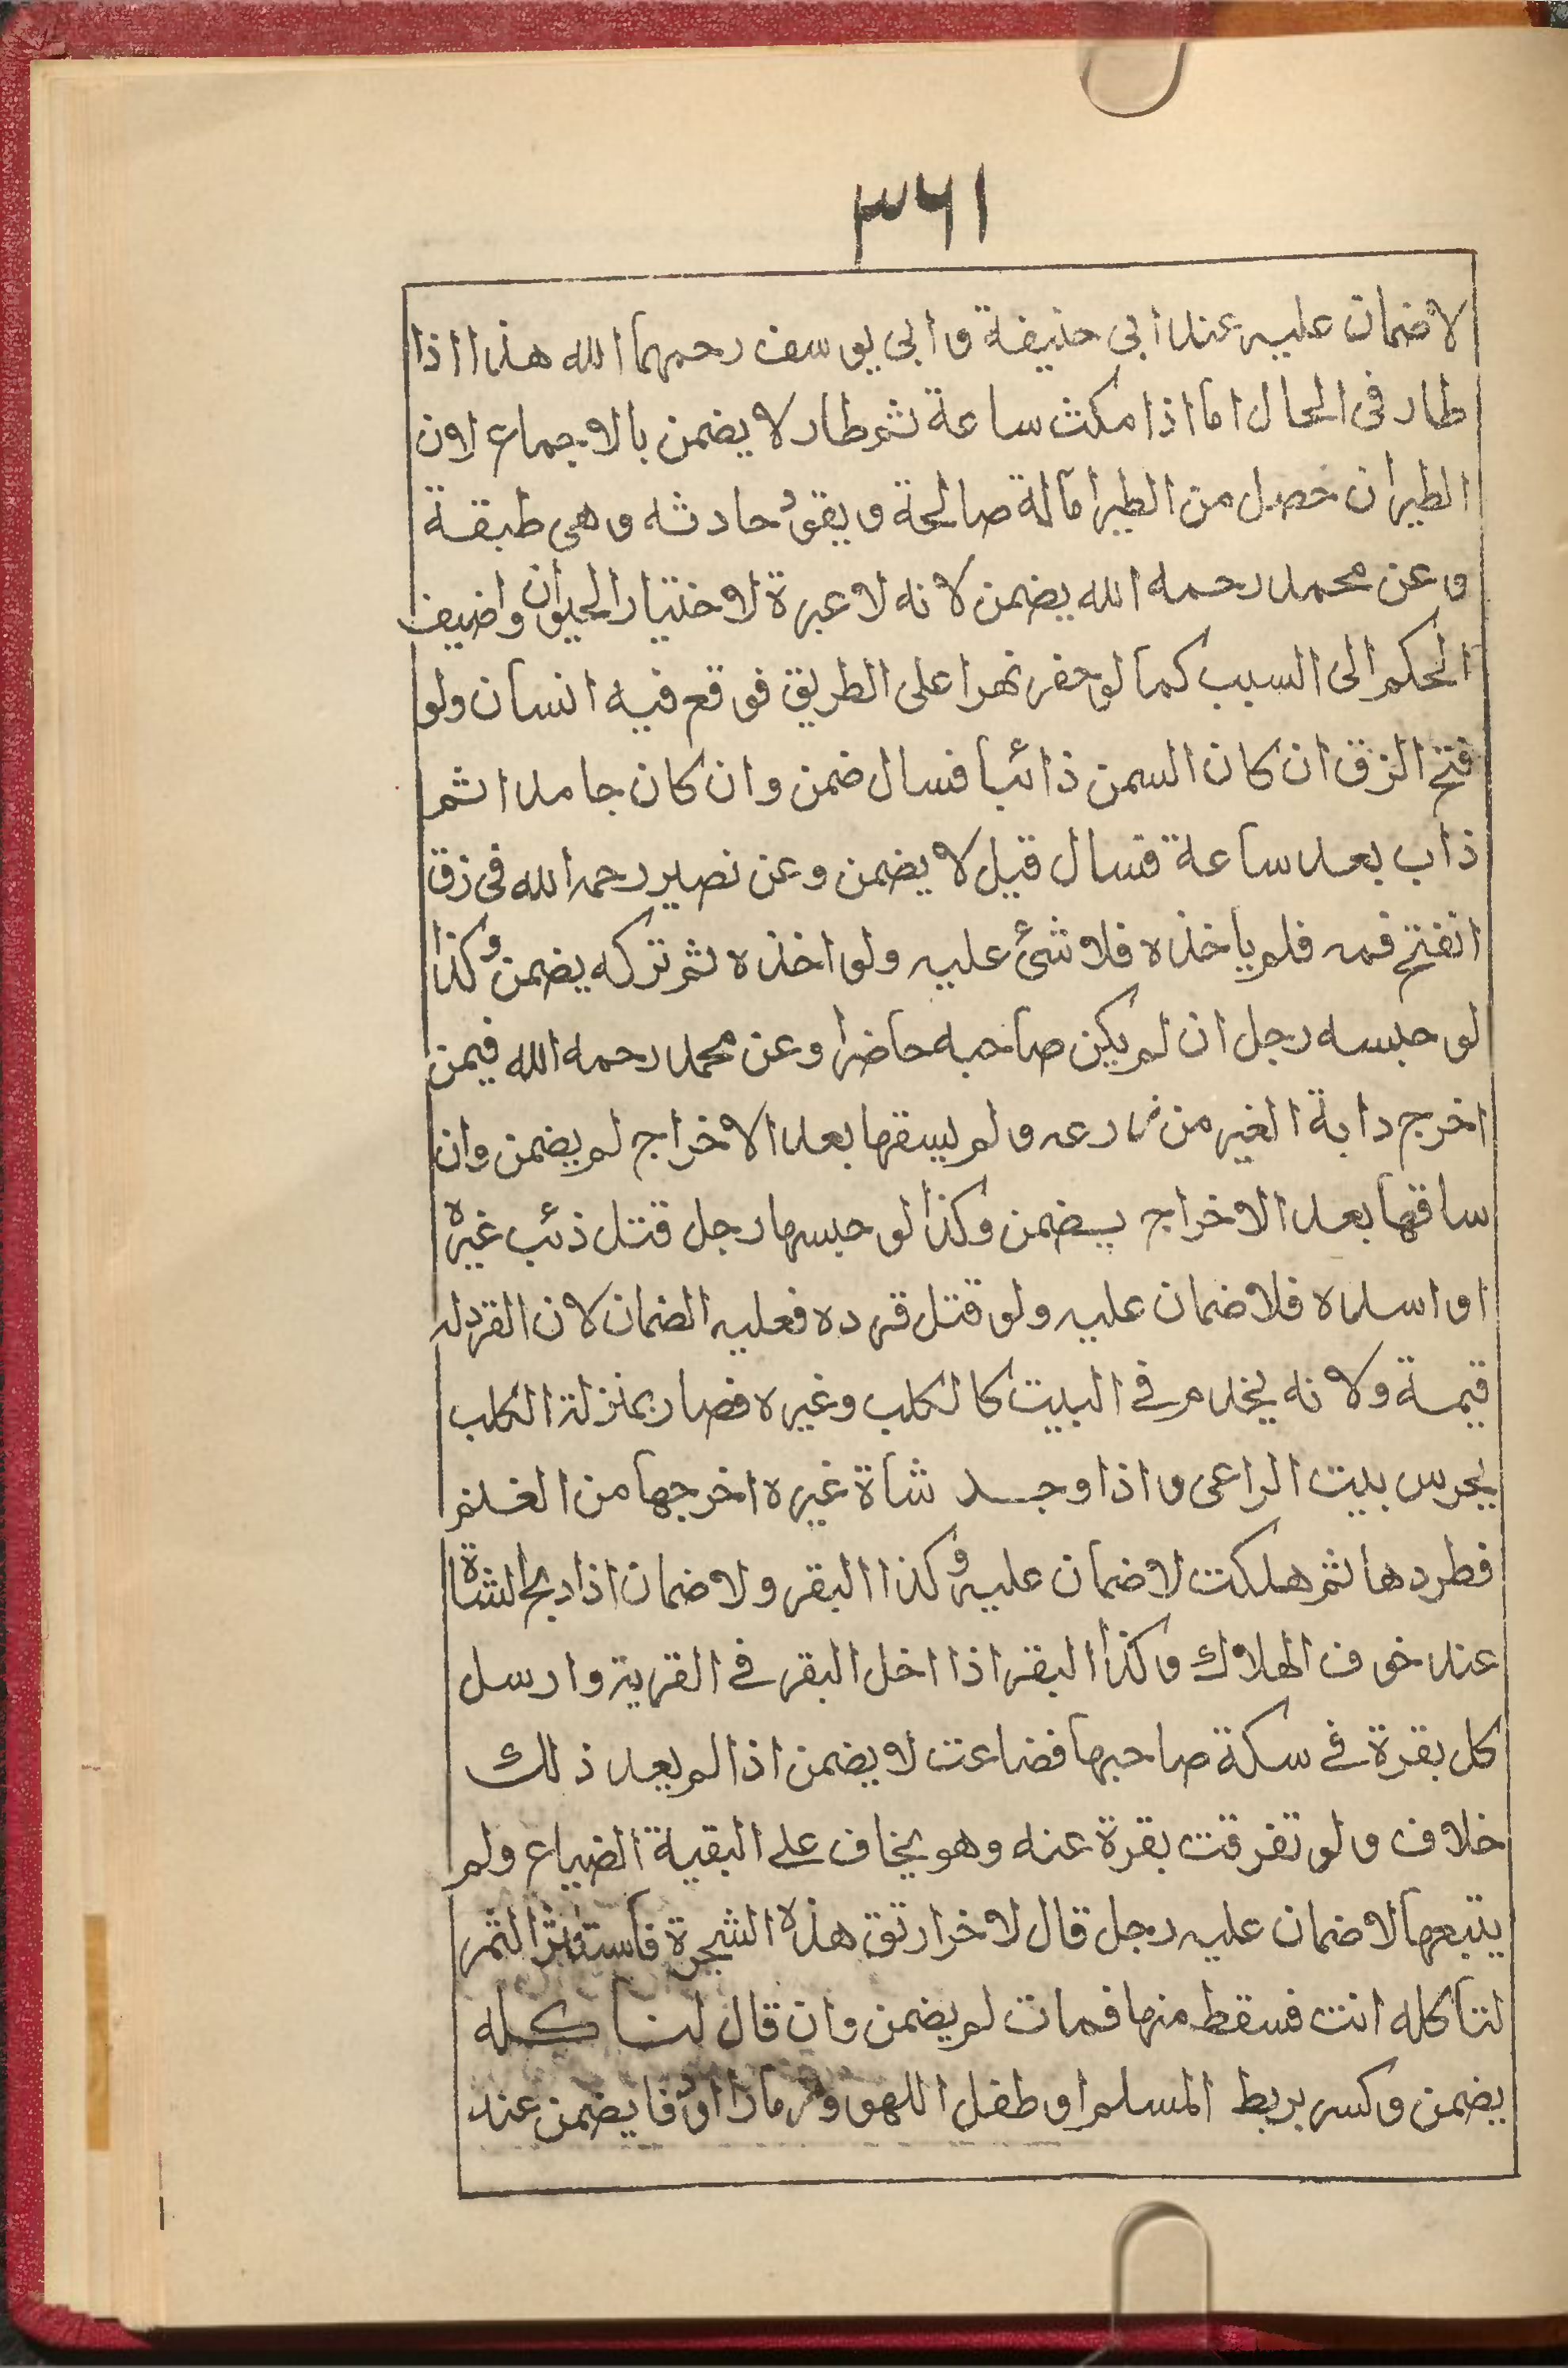 ٣٦١
لاضمان عليه عند ابى حنيفة و ابى يوسف رحمهما الله هذا اذا
طار فى الحال اما اذا مكث ساعة ثم طار لا يضمن بالاجماع لان
الطيران حصل من الطير آلة صالحة و يقو حادثه و هى طبقة
و عن محمد رحمه الله يضمن لانه لا عبرة لاختيار الحيوان واضيف
الحكم الى السبب كما لو حفر نهرا على الطريق فوقع فيه انسان ولو
فتح الزق ان كان السمن ذائبا فسال ضمن وان كان جامدا ثم
ذاب بعد ساعة فسال قيل لا يضمن وعن نصير رحمه الله فى زق
انفتح فمه فلم ياخذه فلا شئ عليه ولو اخذه ثم تركه يضمن وكذا
لو حبسه رجل ان لم يكن صاحبه حاضرا وعن محمد رحمه الله فيمن
اخرج دابة الغير من زرعه و لم يسقها بعد الاخراج لم يضمن وان
ساقها بعد الاخراج يضمن وكذا لو حبسها رجل قتل ذئب غيره
او اسداه فلا ضمان عليه ولو قتل قرده فعليه الضمان لان القرد له
قيمة ولانه يخدم فى البيت كالكلب وغيره فصار بمنزلة الكلب
يحرس بيت الراعى و اذا وجد شاة غيره اخرجها من الغنم
فطردها ثم هلكت لا ضمان عليه وكذا البقر ولا ضمان اذا ذبح الشاة
عند خوف الهلاك وكذا البقر اذا اخل البقر فى القرية وارسل
كل بقرة فى سكة صاحبها فضاعت لا يضمن اذا لم يعد ذلك
خلاف و لو تفرقت بقرة عنه وهو يخاف على البقية الضياع ولم
يتبعها لا ضمان عليه رجل قال لاخر ارتق هذه الشجرة فاستنثر الثمر
لتاكله انت فسقط منها فمات لم يضمن وان قال لناكله
يضمن و كسر بربط المسلم او طفل اللهو و مزمارا اودفا يضمن عند